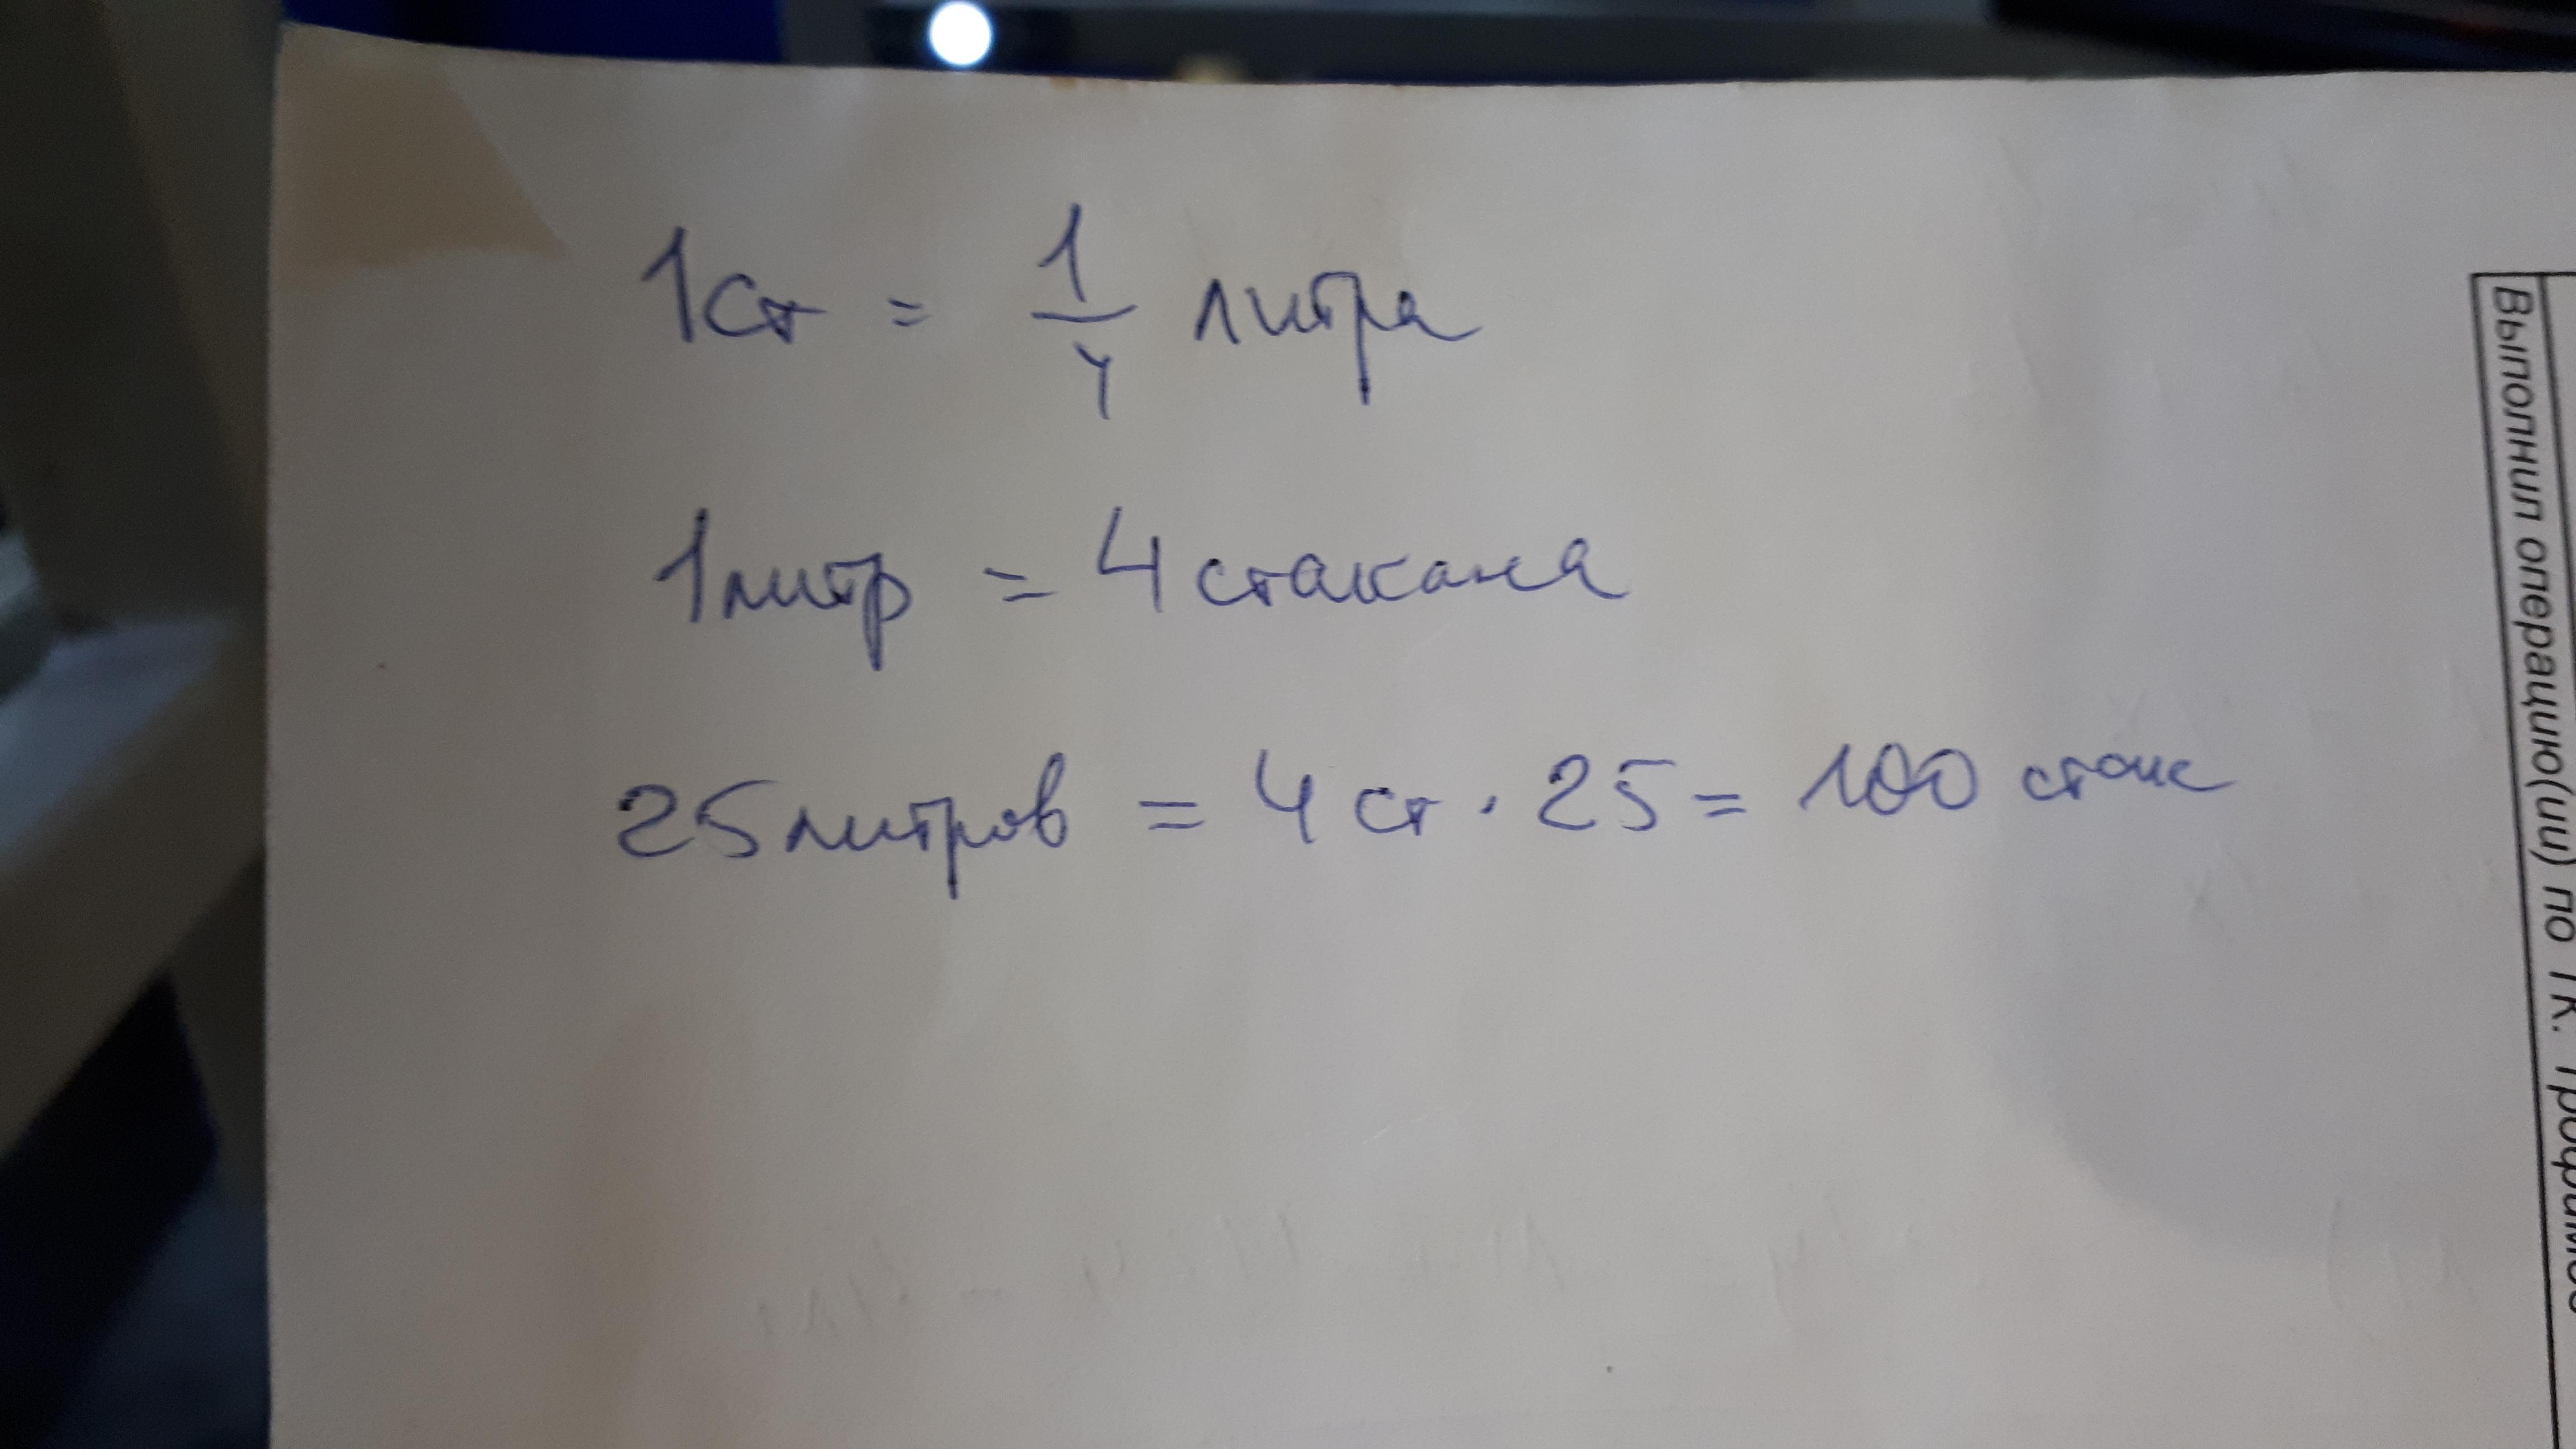 1ст = 1/4 литра
1литр = 4 стакана
25литров = 4 ст · 25 = 100 стак
Выполнил операцию(ии) по ТК.